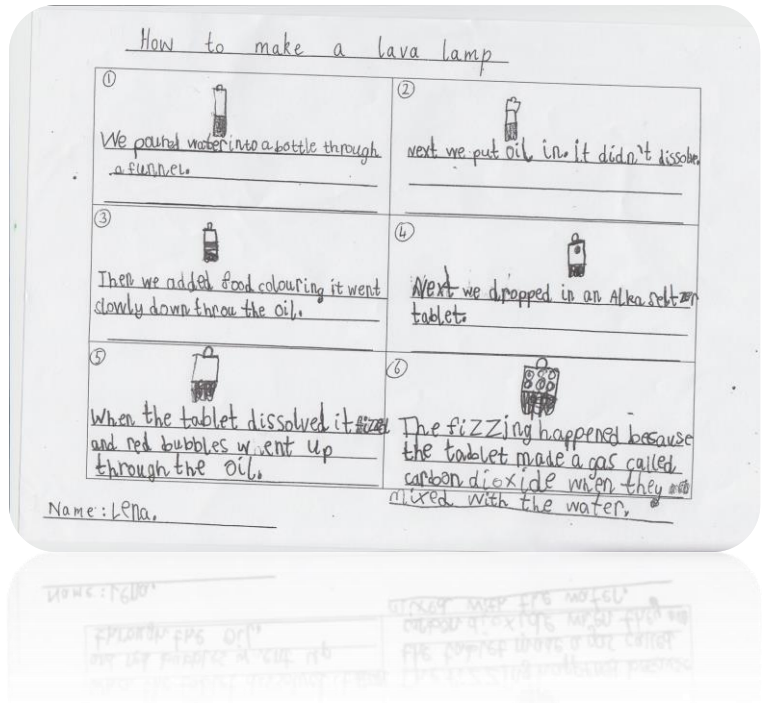 How to make a lava lamp
①
We pound water into a bottle through
a funnel.
②
Next we put oil in. it didn't dissolve.
③
Then we added food colouring it went
slowly down throw the oil.
④
Next we dropped in an Alka seltzer
tablet.
⑤
When the tablet dissolved it fizzed
and red bubbles went up
through the oil.
⑥
The fizzing happened because
the tablet made a gas called
carbon dioxide when they
mixed with the water.
Name: Lena.